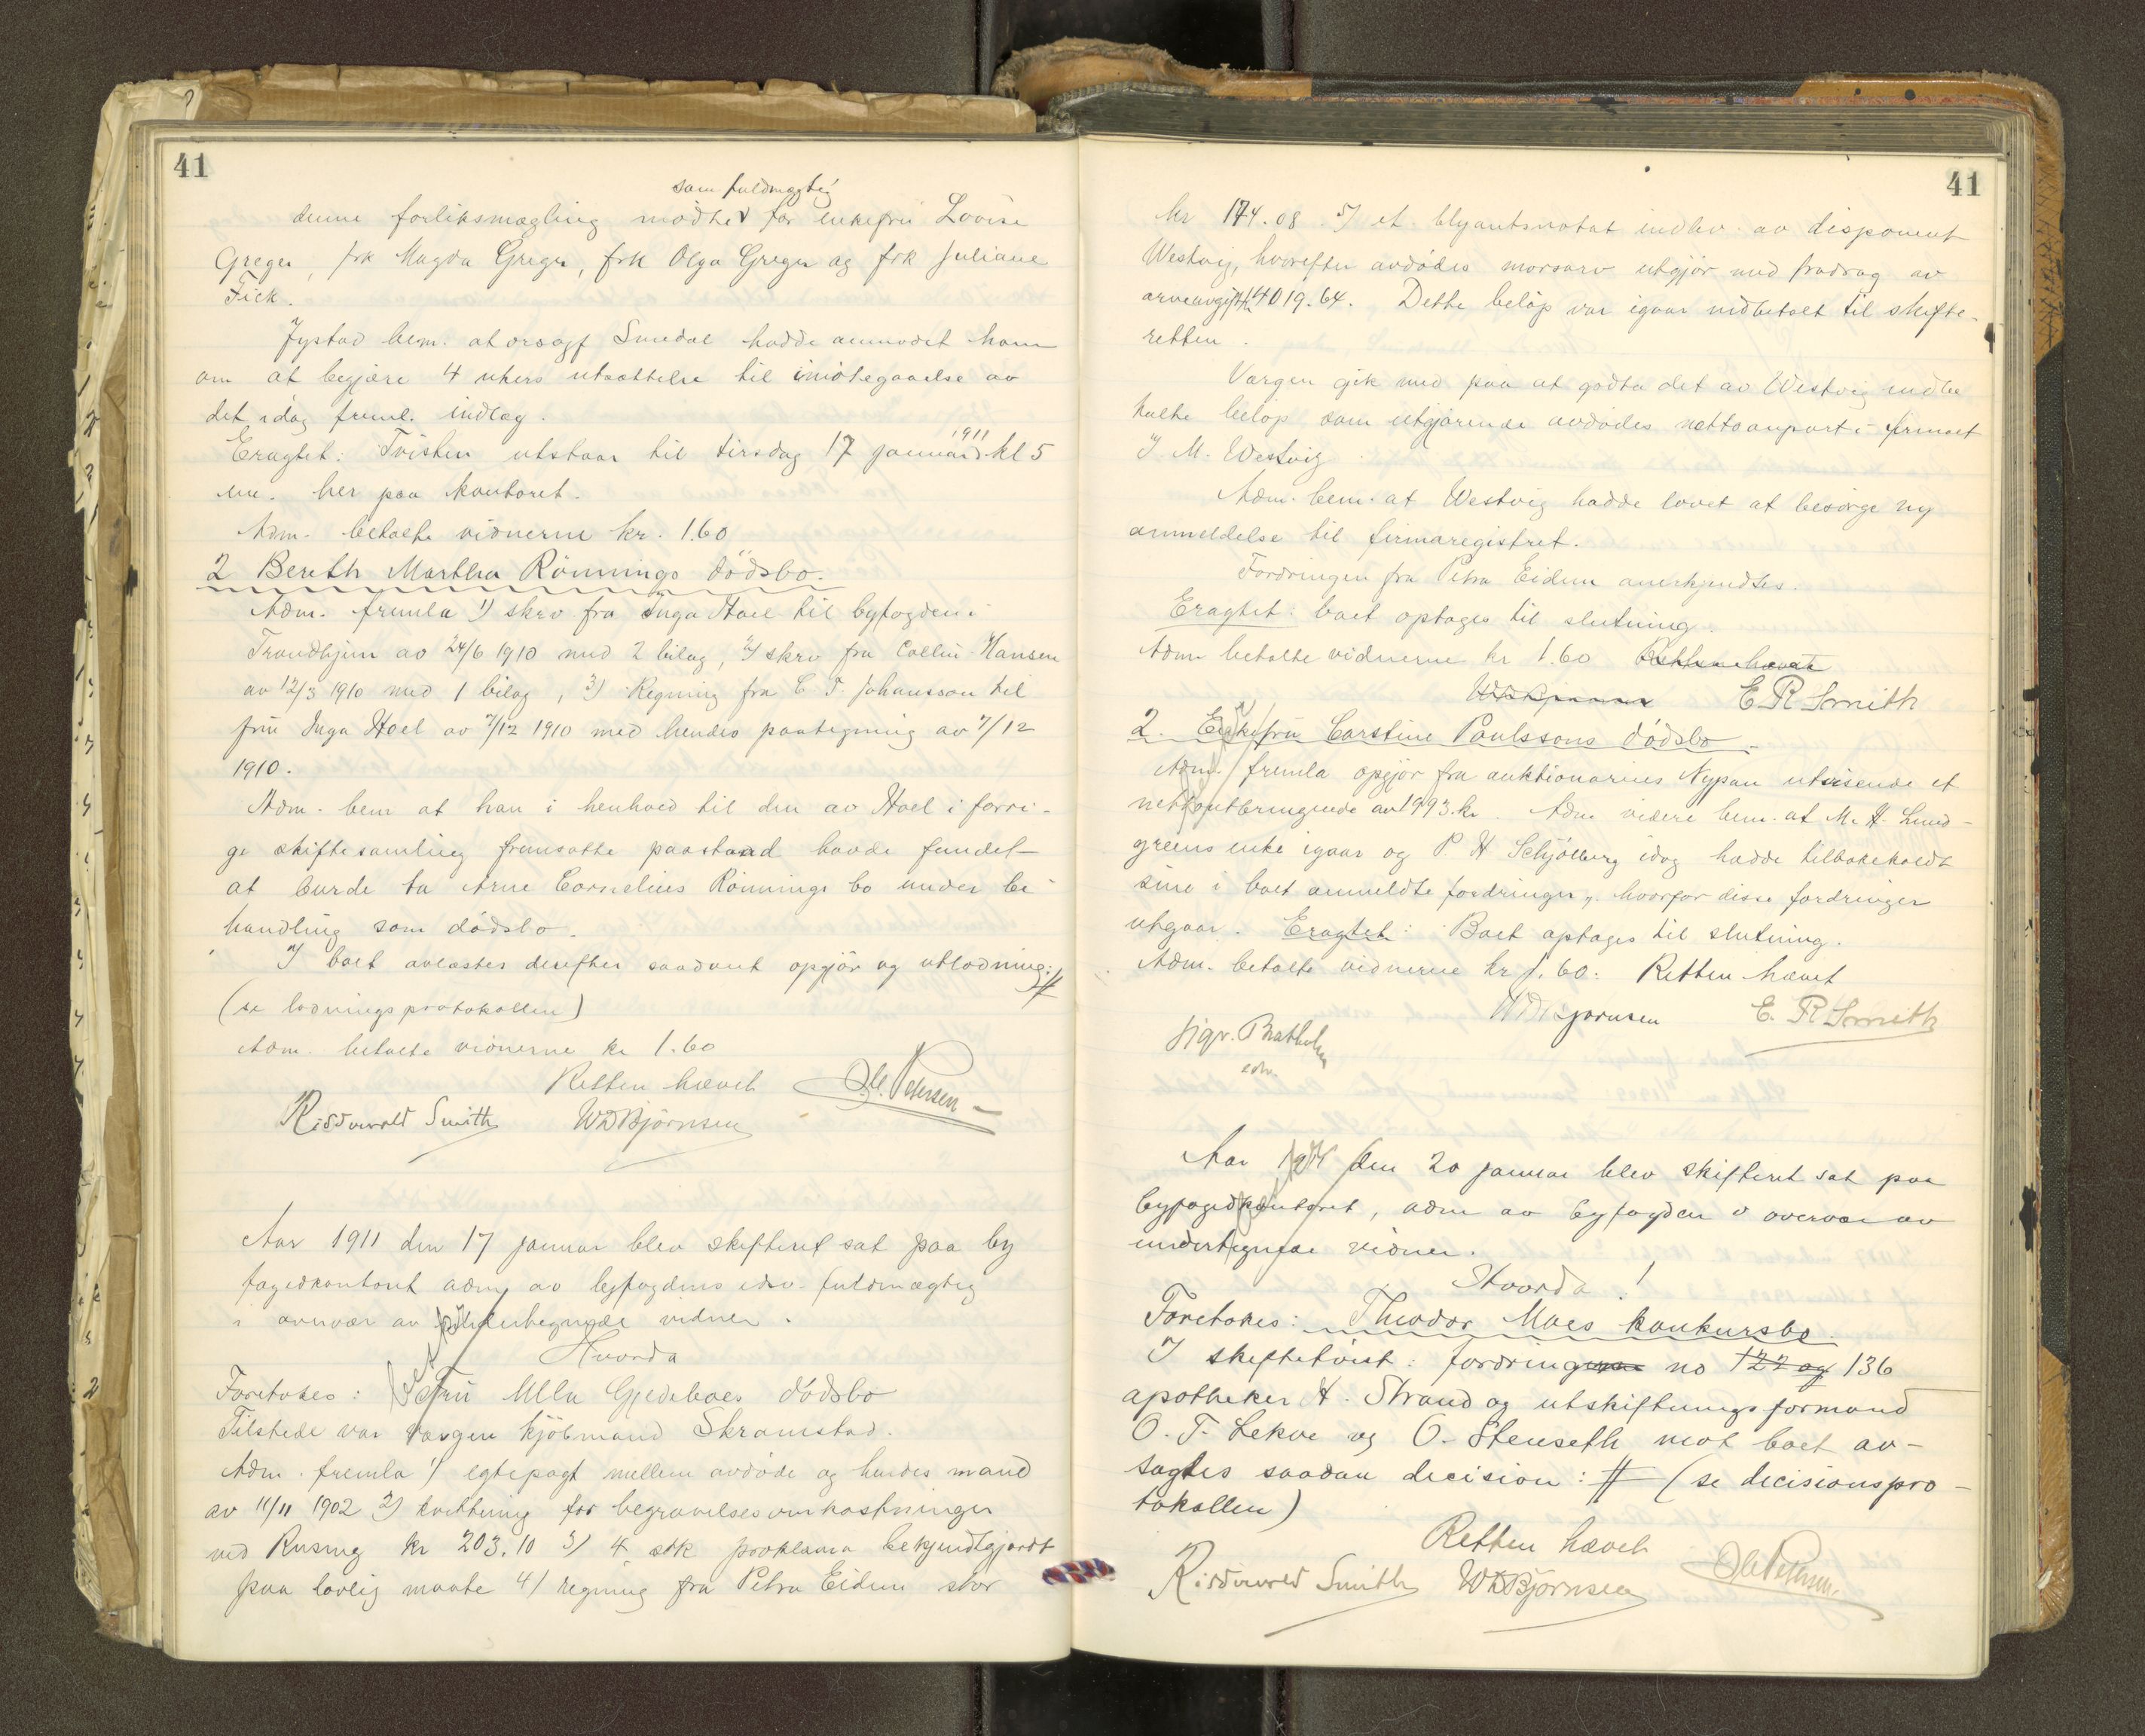 41
som fuldmægtig
denne forliksmægling mødte for enkefru Lovise
Greger, frk Magda Greger, frk Olga Greger og frk Juliane
Fick.
Jystad bem. at orsagf Smedal hadde anmodet ham
om at begjære 4 ukers utsættelse til imøtegaaelse av
det idag freml. indlæg.
Eragtet: Tvisten utstaar til tirsdag 17 januar 1911 kl 5
em. her paa kontoret.
Adm. betalte vidnerne kr. 1.60
2 Bereth Martha Rönnings dödsbo.
Adm. fremla 1) skrv fra Inga Hoel til byfogden i
Trondhjem av 24/6 1910 med 2 bilag, 2) skrv fra Collin-Hansen
av 12/3 1910 med 1 bilag, 3) Regning fra C. F. Johansson til
fru Inga Hoel av 7/12 1910 med hendes paategning av 7/12
1910.
Adm. bem at han i henhold til den av Hoel i forri-
ge skiftesamling fremsatte paastand havde fundet
at burde ta Arne Cornelius Rönnings bo under be-
handling som dödsbo.
I boet avlæstes derefter saadant opgjör og utlodning: #
(se lodningsprotokollen)
Adm. betalte vidnerne kr 1.60
Retten hævet
Ole Petersen
Risdvold Smith WDBjörnsen
Aar 1911 den 17 januar blev skifteret sat paa by
fogedkontoret adm av byfogdens edsv. fuldmægtig
i overvær av undertegnede vidner.
Hvorda
Foretokes: Fru Ulla Gjedeboes dödsbo
Tilstede var værgen kjöbmand Skramstad.
Adm. fremla 1) egtepagt mellem avdöde og hendes mand
av 11/11 1902 2) kvittering for begravelsesomkostninger
ved Rusing kr 203.10 3) 4 stk proklama bekjendtgjordt
paa lovlig maate 4) regning fra Petra Eidem stor
41
kr 174.08. 5) et blyantsnotat indlev. av disponent
Westvig, hvorefter avdödes morsarv utgjör med fradrag av
arveavgift kr 4019.64. Dette belöp var igaar indbetalt til skifte-
retten.
Værgen gik med paa at godta det av Westvig indbe
talte belöp som utgjörende avdödes nettoanpart i firmaet
J. M. Westvig.
Adm. bem. at Westvig hadde lovet at besörge ny
anmeldelse til firmaregistret.
Fordringen fra Petra Eidem anerkjendtes.
Eragtet: boet optages til slutning.
Adm betalte vidnerne kr 1.60 Retten hævet
WDBjörnsen E R Smith
2. Enkefru Carstine Paulssons dödsbo.
Adm. fremla opgjör fra auktionarius Nypan utvisende et
nettoutbringende av 1993. kr. Adm videre bem. at M. H. Lund-
greens enke igaar og P. H Schjölberg idag hadde tilbakekaldt
sine i boet anmeldte fordringer, hvorfor disse fordringer
utgaar. Eragtet: Boet optages til slutning.
Adm. betalte vidnerne kr 1.60. Retten hævet
WDBjörnsen E. R Smith
Sigv. Bratholm
edsv.
Aar 1911 den 20 januar blev skifteret sat paa
byfogedkontoret, adm av byfogden i overvær av
undertegnede vidner.
Hvorda!
Foretokes: Theodor Moes konkursbo.
I skiftetvist: fordringerne no 122 og 136
apotheker H. Strand og utskiftningsformand
O. T. Lekve og O. Stenseth mot boet av-
sagdes saadan decision: # (se decisionspro-
tokollen)
Retten hævet
Risdvold Smith WDBjörnsen Ole Petersen